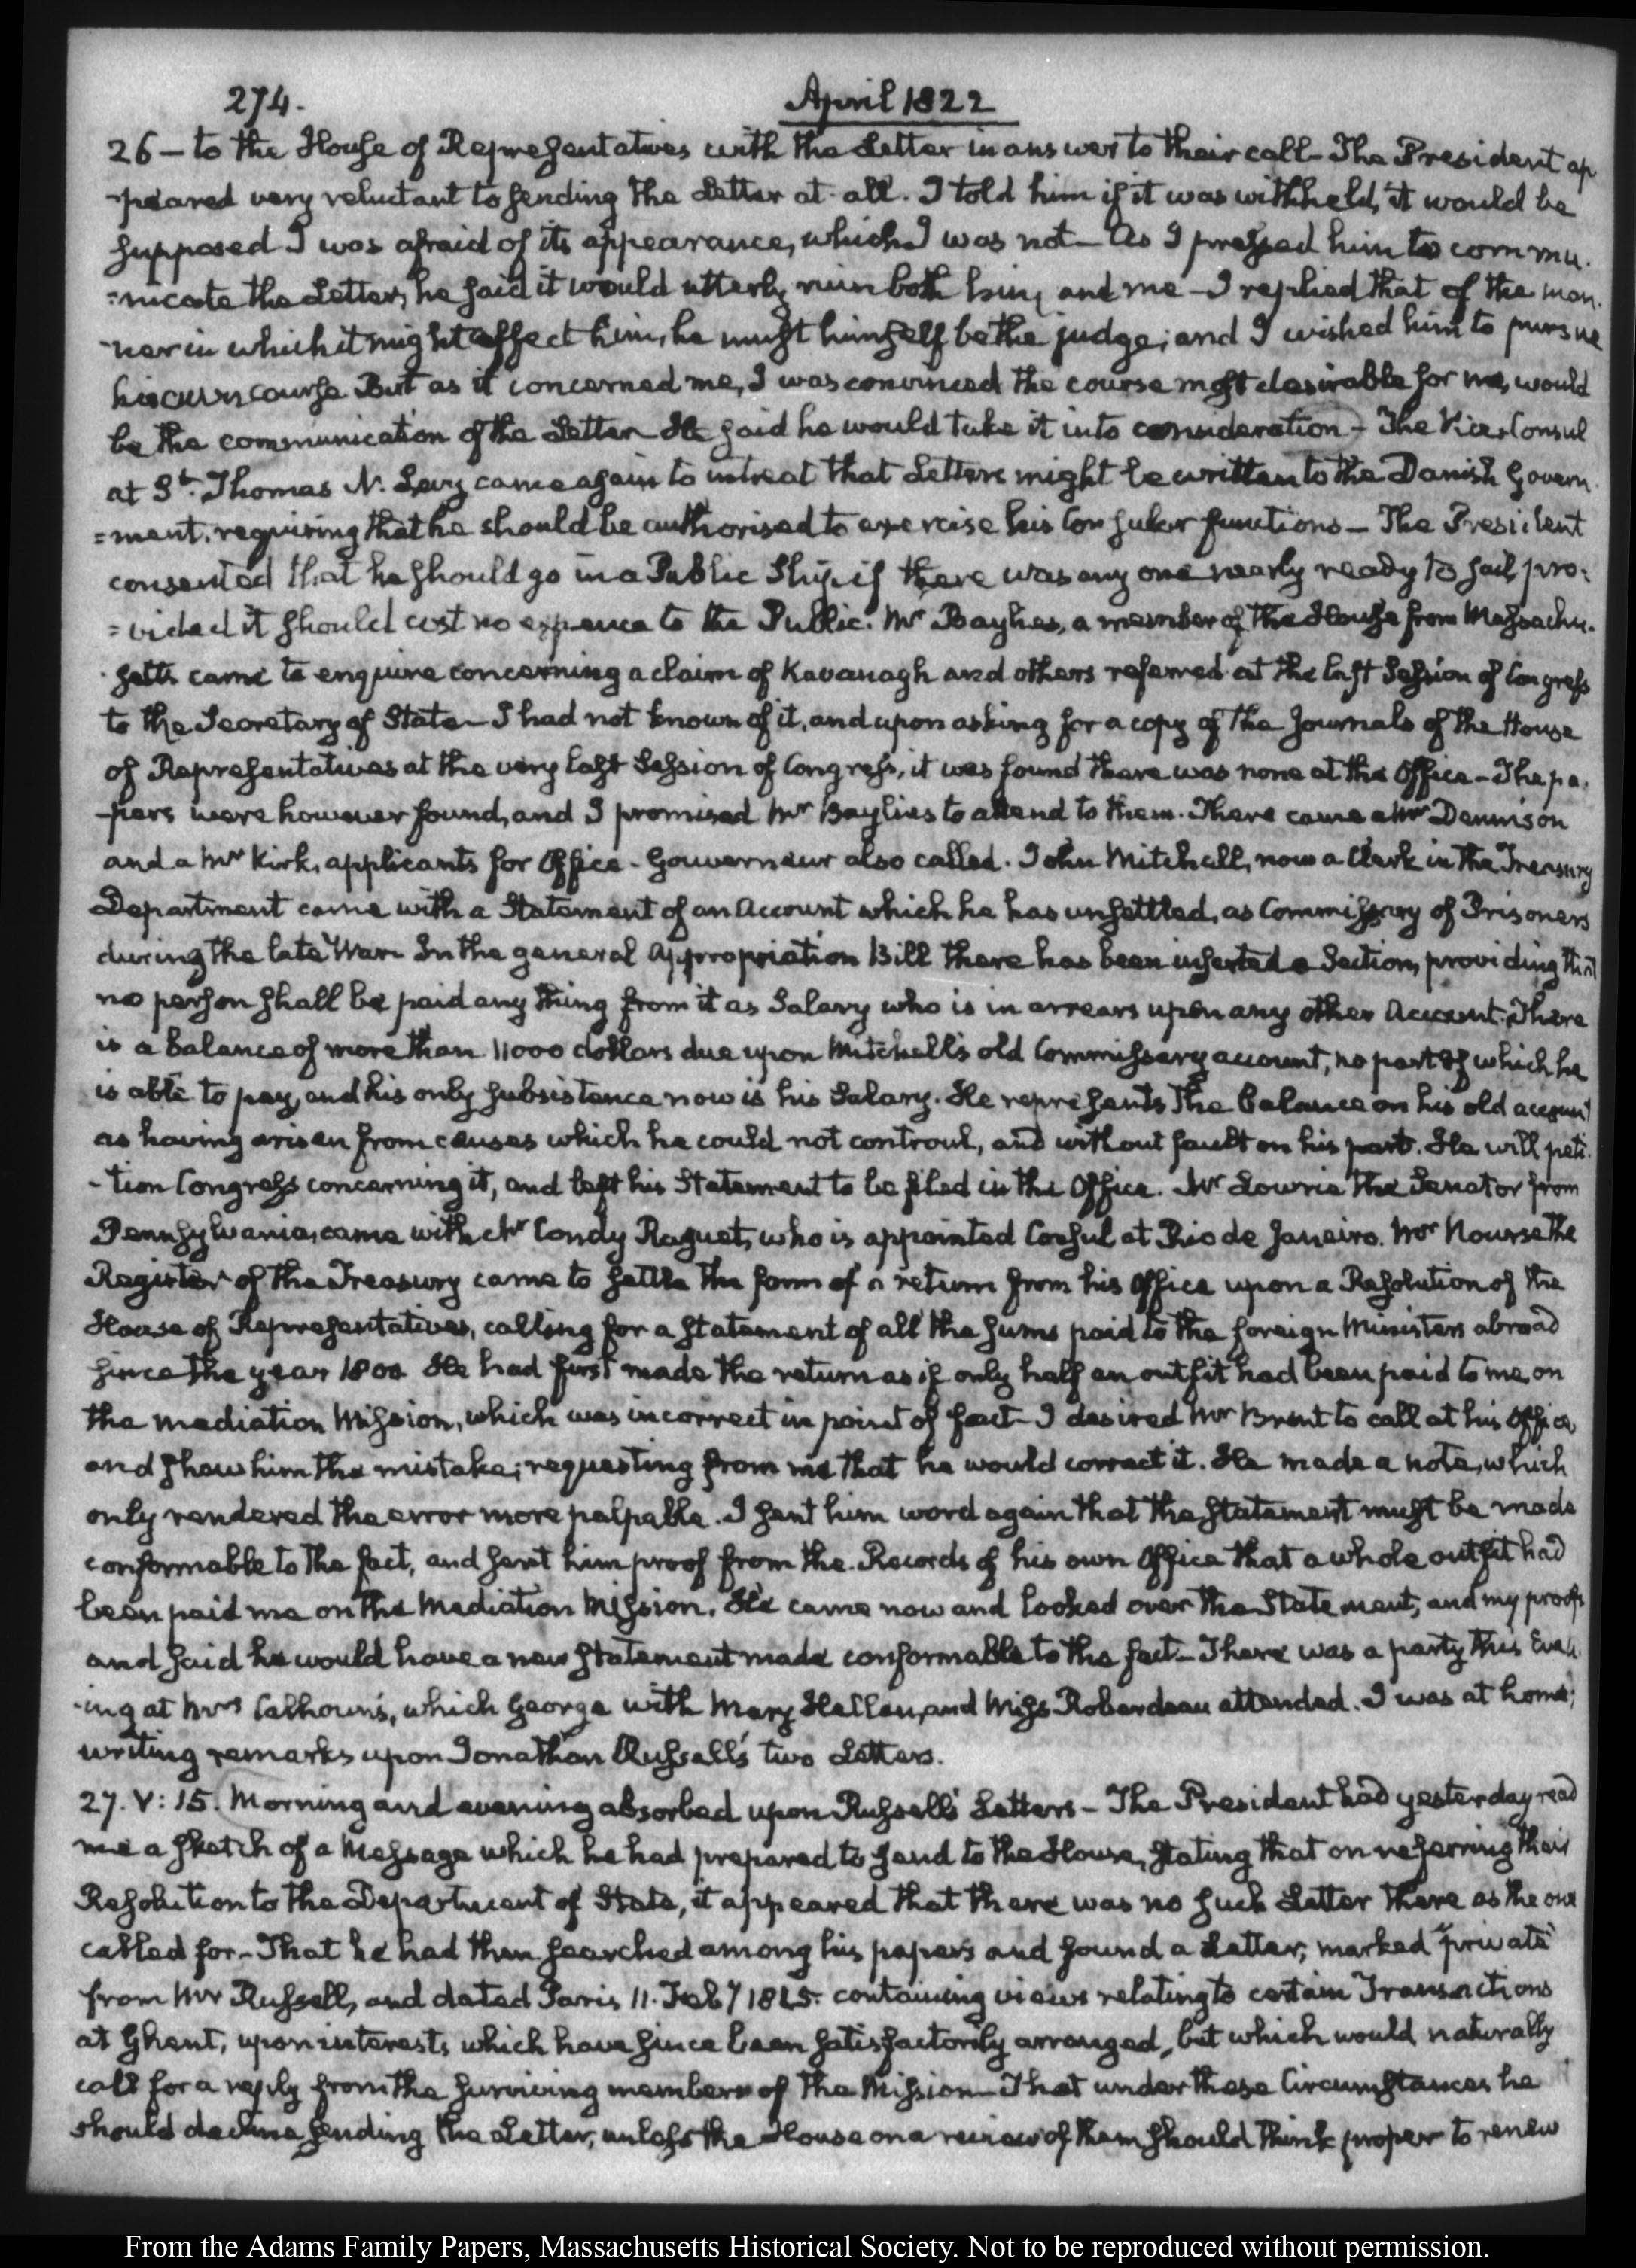 274.
April 1822
26 — to the House of Representatives with the Letter in answer to their call — The President ap
-peared very reluctant to sending the Letter at all. I told him if it was withheld, it would be
supposed I was afraid of its appearance, which I was not — As I pressed him to commu.
=nicate the Letter, he said it would utterly ruin both him and me — I replied that of the man.
-ner in which it might affect him, he must himself be the judge; and I wished him to pursue
his own course But as it concerned me, I was convinced the course most desirable for me, would
be the communication of the Letter He said he would take it into consideration — The Vice Consul
at St. Thomas N. Levy came again to intreat that Letters might be written to the Danish Govern.
=ment, requiring that he should be authorised to exercise his Consular functions — The President
consented that he should go in a Public Ship, if there was any one nearly ready to sail pro:
=vided it should cost no expence to the Public. Mr Baylies, a member of the House from Massachu.
-setts came to enquire concerning a claim of Kavanagh and others referred at the last Session of Congress
to the Secretary of State — I had not known of it, and upon asking for a copy of the Journals of the House
of Representatives at the very last Session of Congress, it was found there was none at the Office — The pa.
-pers were however found, and I promised Mr Baylies to attend to them. There came a Mr Dennison
and a Mr Kirk, applicants for Office — Gouverneur also called. John Mitchell, now a Clerk in the Treasury
Department came with a Statement of an Account which he has unsettled, as Commissary of Prisoners
during the late War. In the general Appropriation Bill there has been inserted a Section, providing that
no person shall be paid any thing from it as Salary who is in arrears upon any other Account. There
is a balance of more than 11000 dollars due upon Mitchell's old Commissary account, no part of which he
is able to pay, and his only subsistence now is his Salary. He represents the balance on his old account
as having arisen from causes which he could not controul, and without fault on his part. He will peti.
-tion Congress concerning it, and left his Statement to be filed in the Office. Mr Lowrie the Senator from
Pennsylvania, came with Mr Condy Raguet, who is appointed Consul at Rio de Janeiro. Mr Nourse the
Register of the Treasury came to settle the form of a return from his Office upon a Resolution of the
House of Representatives, calling for a statement of all the sums paid to the foreign Ministers abroad
since the year 1800 He had first made the return as if only half an outfit had been paid to me, on
the mediation Mission, which was incorrect in point of fact — I desired Mr Brent to call at his Office
and shew him the mistake; requesting from me that he would correct it. He made a note, which
only rendered the error more palpable. I sent him word again that the statement must be made
conformable to the fact, and sent him proof from the Records of his own Office that a whole outfit had
been paid me on the Mediation Mission. He came now and looked over the Statement, and my proofs
and said he would have a new statement made conformable to the fact — There was a party this Even
-ing at Mrs Calhoun's, which George with Mary Hellen, and Miss Roberdeau attended. I was at home;
writing remarks upon Jonathan Russell's two Letters.
27. V: 15. Morning and evening absorbed upon Russell's Letters — The President had yesterday read
me a sketch of a Message which he had prepared to send to the House, stating that on referring their
Resolution to the Department of State, it appeared that there was no such Letter there as the one
called for — That he had then searched among his papers and found a Letter, marked "private"
from Mr Russell, and dated Paris 11. Feby 1815. containing views relating to certain Transactions
at Ghent, upon interests which have since been satisfactorily arranged, but which would naturally
call for a reply from the surviving members of the Mission — That under these Circumstances he
should decline sending the Letter, unless the House on a review of them should think proper to renew
From the Adams Family Papers, Massachusetts Historical Society. Not to be reproduced without permission.